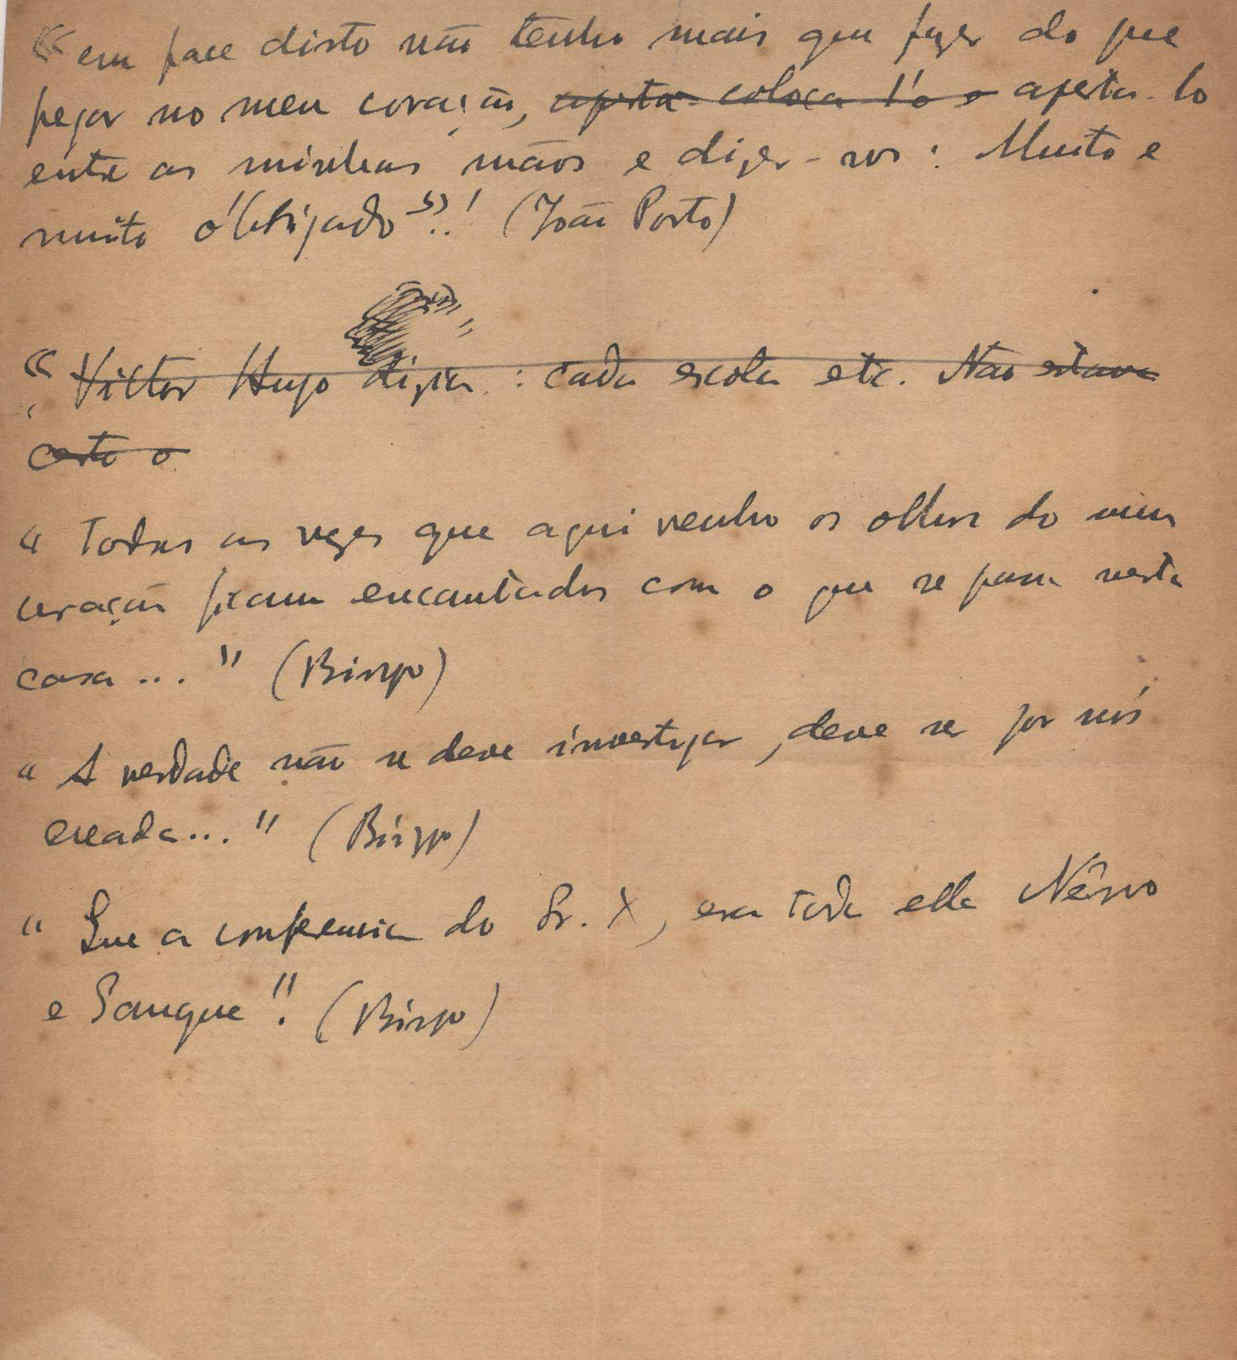 «em face disto não tenho mais que fazer do que
pegar no meu coração, aperta- coloca l'o o aperta-lo
entre as minhas mãos e dizer-vos: Muito e
muito óbrigado»!! (João Porto)
«Victor Hugo dizia: cada escola etc. Não estava
certo o
"Todas as vezes que aqui venho os olhos do meu
coração ficam encantados com o que se passa nesta
casa..." (Bispo)
"A verdade não se deve investigar, deve ser por nós
creada..." (Bispo)
"Que a conferencia do Sr. X, era toda ella Nêrvo
e Sangue". (Bispo)